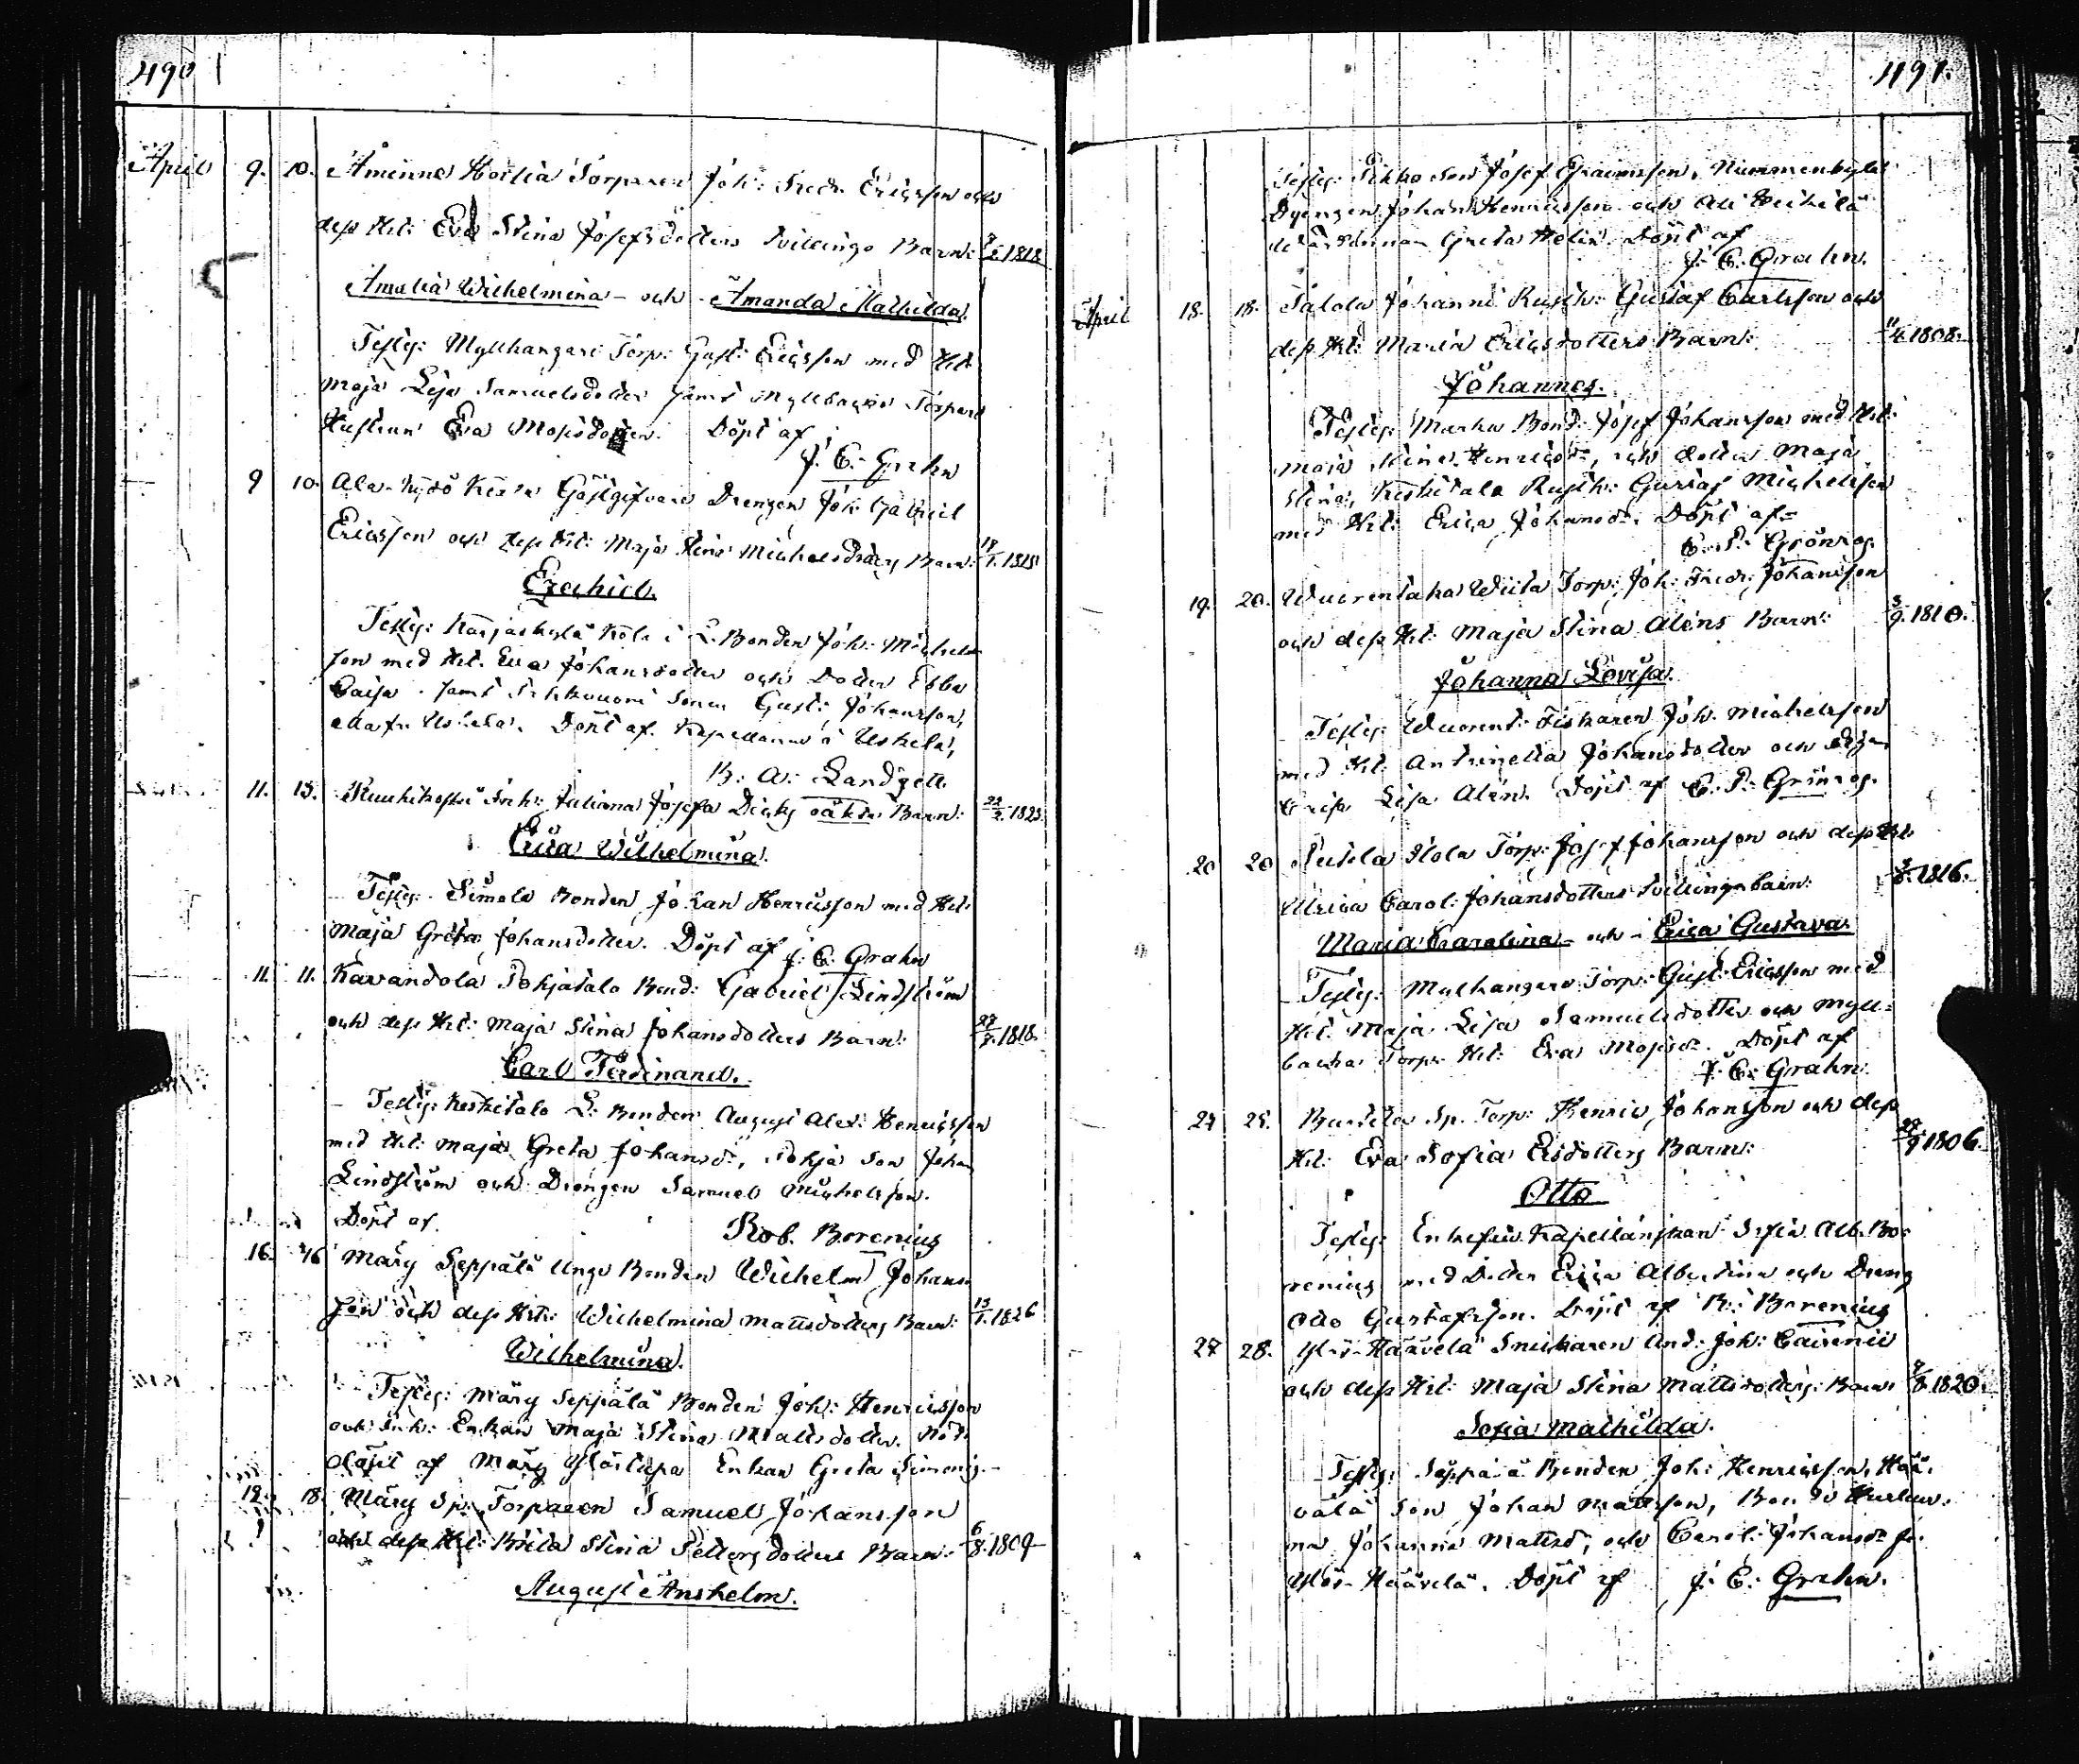 490
April 9. 10. Äminne Torparen Joh: Fredr. Ericsson och
dess Ht: Eva Stina Josefsdotters Tvillinge Barn: 1818
Amalia Wilhelmina - och - Amanda Mathilda.
Testes: Myllkangare Torp: Gust: Ericsson med Ht:
Maja Lisa Samuelsdotter samt Myllbacka Torpare
Hustrun Eva Mosisdotter. Döpt af
J. E. Grahn
9 10. Ala-Hydö Gästgifvare Drengen Joh: Gabriel
Ericsson och dess Ht: Maja Stina Michelsdotters Barn:
Ezechiel.
Testes: Karjaskylä L. Bonden Joh: Michels
son med Ht: Eva Johansdotter och Dotter Ebba
Caisa. samt Sonen Gust: Johansson,
Uskela. Döpt af Kapellanen i Uskela,
B: A: Landzett
11. 13. Kuukikoski Inh: Juliana Josefa oäkta Barn: 22/2. 1823
Erica Wilhelmina.
Testes: Simola Bonden Johan Henricsson med Ht:
Maja Greta Johansdotter. Döpt af J. E. Grahn
11. 11. Kavandola Pohjatalo Bond: Gabriel Lindström
och dess Ht: Maja Stina Johansdotters Barn: 27/7. 1818.
Carl Ferdinand.
Testes: Keskitalo L: Bonden August Alex: Henricsson
med Ht: Maja Greta Johansd:, Pohja Son Johan
Lindström och Drengen Samuel Michelsson.
Döpt af Rob. Borenius
16. 16 Märy Seppälä Unge Bonden Wilhelm Johans
son och dess Ht: Wilhelmina Mattsdotters Barn: 13/1. 1826
Wilhelmina.
Testes: Märy Seppälä Bonden Joh: Henricsson
och Inh: Enkan Maja Stina Mattsdotter. Nöd-
döpt af Märy Enkan Greta
18. 18. Märy Sp: Torparen Samuel Johansson
och dess Ht: Brita Stina Pettersdotters Barn: 6/8. 1809
August Anshelm.
491.
Testes: Pikko Son Josef Efraimsson, Nummenkylä
Drengen Johan Henricsson och
Greta Helin. Döpt af
J. E. Grahn.
April 18. 18. Talola Johanni Rusth: Gustaf Carlsson och
dess Ht: Maria Ericsdotters Barn: 11/4. 1808.
Johannes.
Testes: Marka Bond: Josef Johansson med Ht:
Maja Stina Henricsd:, och dotter Maja
Stina, Keskitalo Rusth: Gustaf Michelsson
med Ht: Erica Johansd:. Döpt af
C. P. Grönrog.
19. 20. Wuorentaka Wiita Torp: Joh: Fredr: Johansson
och dess Ht: Maja Stina Aléns Barn: 3/9. 1810.
Johanna Lovisa.
Testes: Wuorent: Fiskaren Joh. Michelsson
med Ht: Antonetta Johansdotter och
Lisa Alén. Döpt af C. P. Grönrog.
20 20 Torp: Josef Johansson och dess Ht:
Ulrica Carol: Johansdotters Tvillinge barn: 1816.
Maria Carolina - och - Erica Gustava.
Testes: Myllkangare Torp: Gust: Ericsson med
Ht: Maja Lisa Samuelsdotter och Myll-
backa Torp: Ht: Eva Mosisd:. Döpt af
J. E. Grahn.
24 25. Sp. Torp: Henric Johansson och dess
Ht: Eva Sofia Barn: 1806.
Otto
Testes: Enkefru Kapellanskan Sofia Alb. Bo-
renius med Dotter Erica Albertina och Dreng
Otto Gustafsson. Döpt af R: Borenius
27 28. Yli-Häävelä Snickaren And: Joh: Cairenii
och dess Ht: Maja Stina Mattsdotters Barn: 1820.
Sofia Mathilda.
Testes: Seppälä Bonden Joh: Henricsson, Hää-
välä Son Johan Mattsson, Hustrur-
na Johanna Mattsd: och Carol: Johansd: fr.
Häävelä. Döpt af J. E. Grahn.